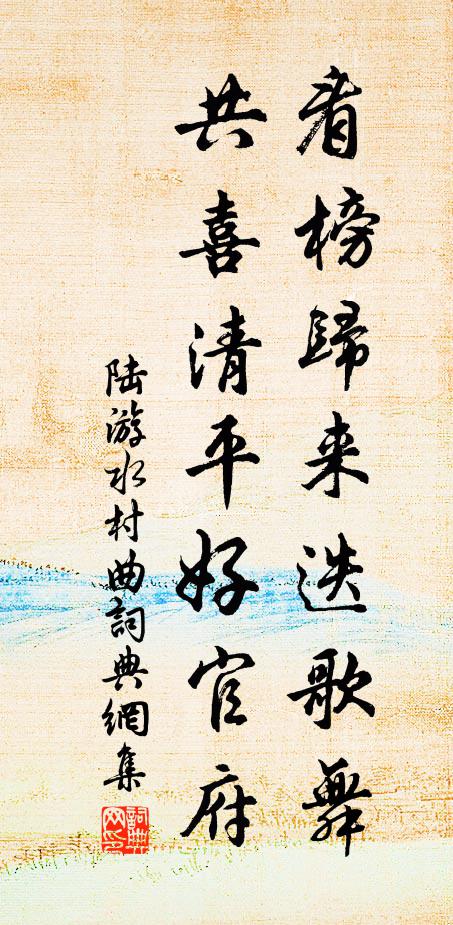 看榜歸来迭歌舞
共喜清平好官府
陆游水村曲詞典網集
詞典网印